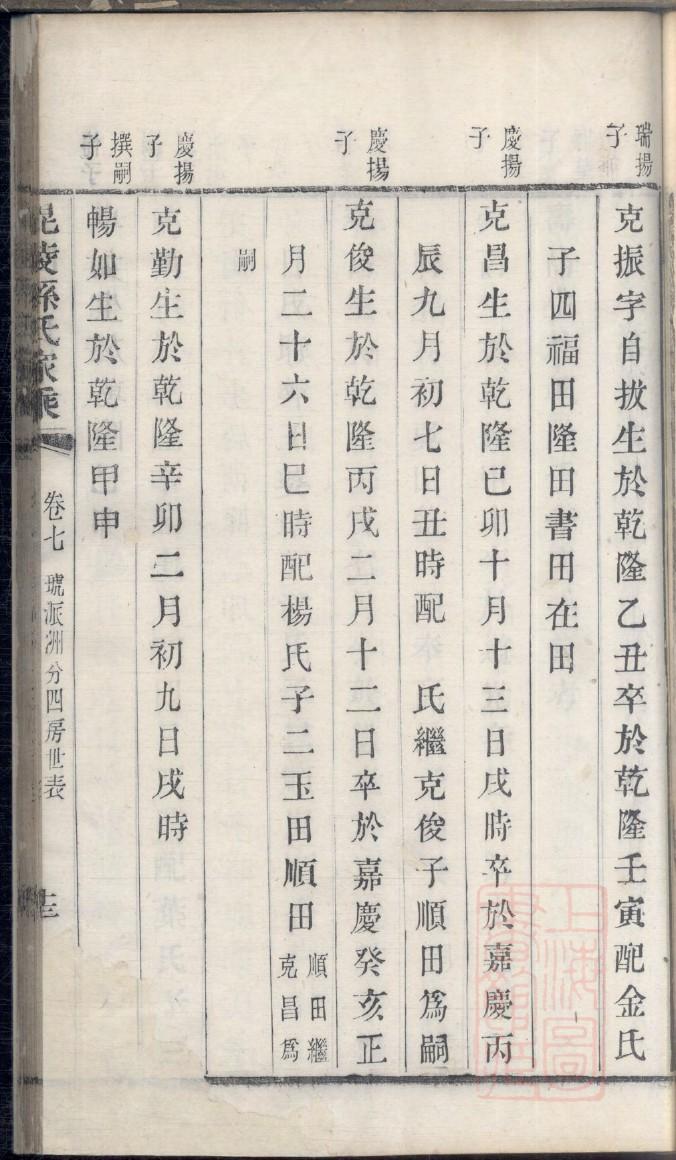 瑞揚子
克振字自拔生於乾隆乙丑卒於乾隆壬寅配金氏
子四福田隆田書田在田
慶揚子
克昌生於乾隆己卯十月十三日戌時卒於嘉慶丙
辰九月初七日丑時配　氏繼克俊子順田爲嗣
慶揚子
克俊生於乾隆丙戌二月十二日卒於嘉慶癸亥正
月二十六日巳時配楊氏子二玉田順田順田繼克昌爲
嗣
慶揚子
克勤生於乾隆辛卯二月初九日戌時
撰嗣子
暢如生於乾隆甲申
毘陵孫氏家乘
卷七　琥派洲分四房世表
上海圖